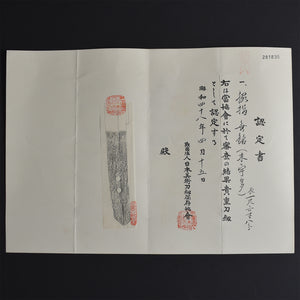 281835
認定書
一、脇指 無銘(末宇多)
右は當協会に於て審査の結果貴重刀剣
として認定する
昭和四十八年四月十五日
財団法人日本美術刀剣保存協会
殿